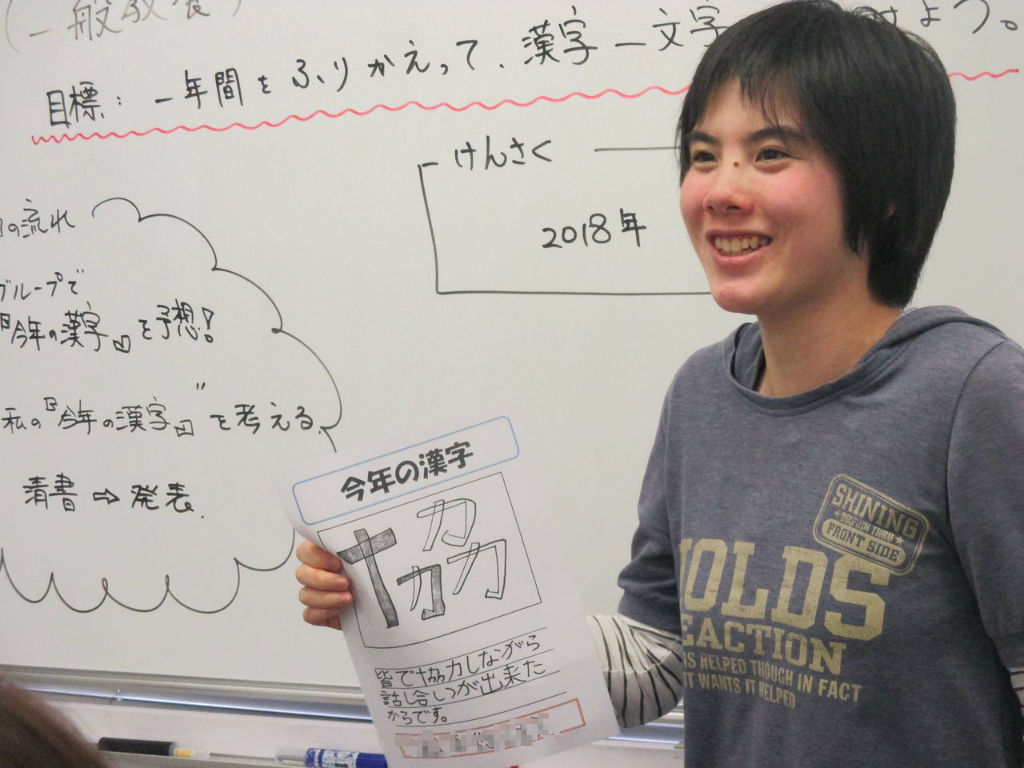 (一般教養)
目標: 一年間をふりかえって、漢字一文字
けんさく
2018年
の流れ
グループで
『今年の漢字』を予想!
私の『今年の漢字』"を考える。
清書 ⇨ 発表。
今年の漢字
協
皆で協力しながら
話し合いが出来た
からです。
SHINING
FRONT SIDE
OLDS
EACTION
IS HELPED THOUGH IN FACT
IT WANTS IT HELPED